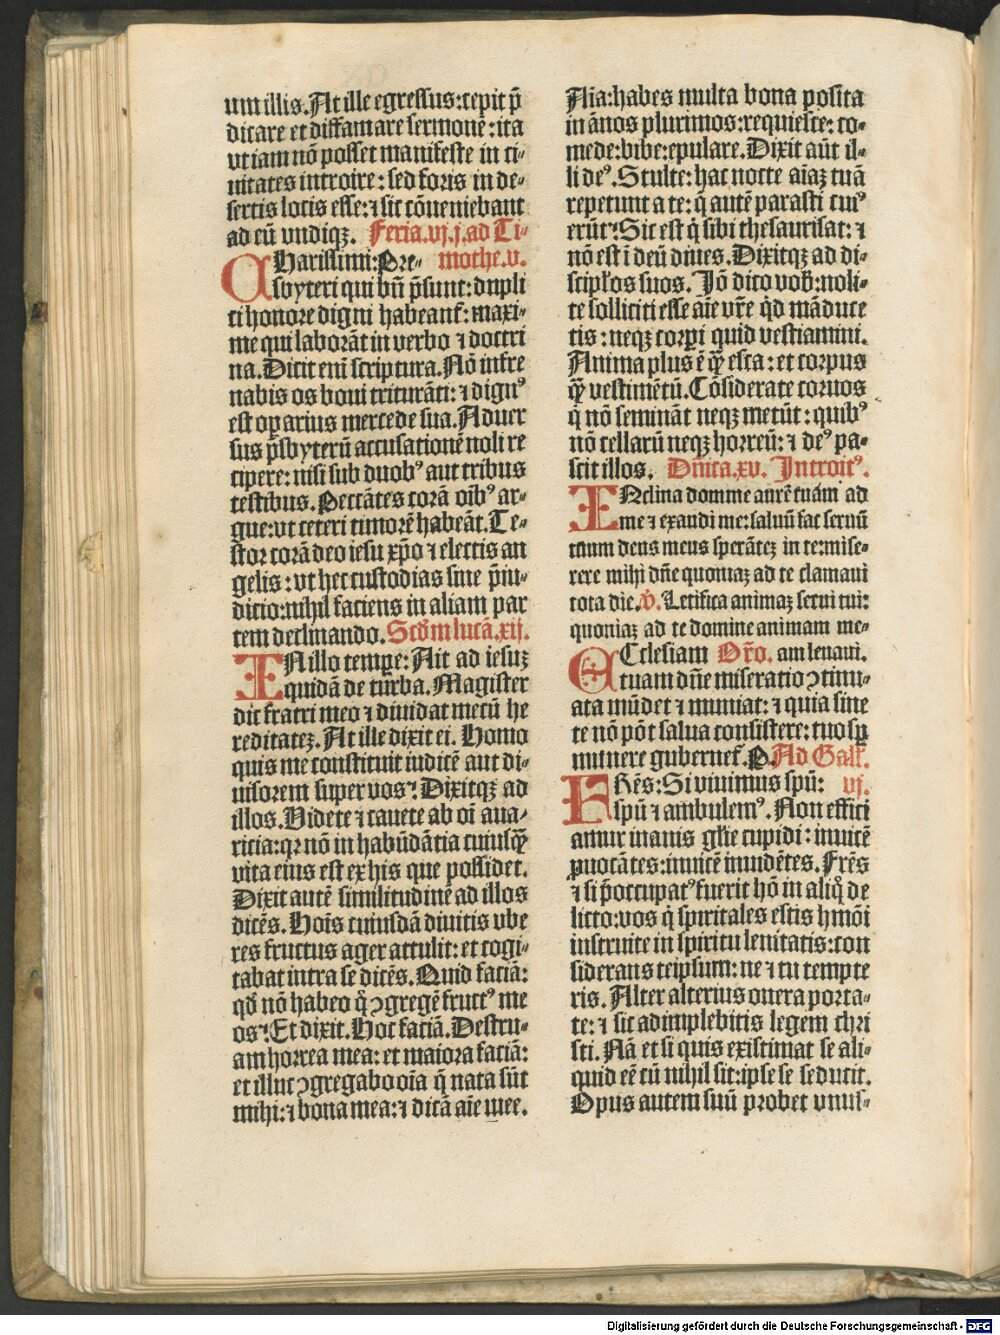 um illis. At ille egressus: cepit p̄
dicare et diffamare sermonē: ita
vt iam nō posset manifeste in ci⸗
uitates introire: sed foris in de⸗
sertis locis esse: ⁊ sic cōueniebant
ad eū vndiqꝫ. Feria.vj.j.ad Ti⸗
CHarissimi: Pre⸗ mothe.v.
sbyteri qui bn̄ p̄sunt: dupli
ci honore digni habeant᷑: maxi⸗
me qui laborāt in verbo ⁊ doctri
na. Dicit eni scriptura. Nō infre
nabis os boui triturāti: ⁊ dignꝰ
est oꝑarius mercede sua. Aduer
sus p̄sbyterū accusationē noli re
cipere: nisi sub duobꝰ aut tribus
testibus. Peccātes corā oībꝰ ar⸗
gue: vt ceteri timorē habeāt. Te⸗
stor corā deo iesu xp̄o ⁊ electis an
gelis: vt hec custodias sine p̄iu⸗
dicio: nihil faciens in aliam par
tem declinando. Scd̄m lucā.xij.
IN illo tempꝛe: Ait ad iesuꝫ
quidā de turba. Magister
dic fratri meo ⁊ diuidat mecū he
reditateꝫ. At ille dixit ei. Homo
quis me constituit iudicē aut di⸗
uisorem super vos? Dixitqꝫ ad
illos. Videte ⁊ cauete ab oī aua⸗
ricia: qꝛ nō in habūdātia cuiusqꝫ̄
vita eius est ex his que possidet.
Dixit autē similitudinē ad illos
dicēs. Hoīs cuiusdā diuitis vbe
res fructus ager attulit: et cogi⸗
tabat intra se dicēs. Quid faciā:
qd̄ nō habeo q̊ ꝯgregē fructꝰ me
os? Et dixit. Hoc faciā. Destru⸗
am horrea mea: et maiora faciā:
et illuc ꝯgregabo oīa q̄ nata sūt
mihi: ⁊ bona mea: ⁊ dicā aīe mee.
Aīa: habes multa bona posita
in ānos plurimos: requiesce: co⸗
mede: bibe: epulare. Dixit aūt il⸗
li deꝰ. Stulte: hac nocte aīaꝫ tuā
repetunt a te: q̄ autē parasti cuiꝰ
erūt? Sic est q̇ sibi thesaurisat: ⁊
nō est ī deū diues. Dixitqꝫ ad di⸗
scipl̄os suos. Jō dico vob̄: noli⸗
te solliciti esse aīe vr̄e qd̄ māduce
tis: neqꝫ corpꝛi quid vestiamini.
Anima plus ē qꝫ̄ esca: et corpus
qꝫ̄ vestimētū. Cōsiderate coruos
q̇ nō semināt neqꝫ metūt: quibꝰ
nō cellarū neqꝫ horreū: ⁊ deꝰ pa⸗
scit illos. Dn̄ica.xv. Introitꝰ.
INclina domine aurē tuam ad
me ⁊ exaudi me: saluū fac seruū
tuum deus meus sperāteꝫ in te: mise⸗
rere mihi dn̄e quoniaꝫ ad te clamaui
tota die. ꝟ. Letifica animaꝫ serui tui:
quoniaꝫ ad te domine animam me⸗
ECclesiam Or̄o. am leuaui.
tuam dn̄e miseratio ꝯtinu⸗
ata mūdet ⁊ muniat: ⁊ quia sine
te nō pōt salua consistere: tuo sꝑ
munere gubernet᷑. P. Ad Gal̄.
FRēs: Si viuimus spū: vj.
spū ⁊ ambulemꝰ. Non effici
amur inanis gl̄ie cupidi: inuicē
ꝓuocātes: inuicē inuidētes. Frēs
⁊ si p̄occupatꝰ fuerit hō in aliq̊ de
licto: vos q̇ spiritales estis hm̄oi
instruite in spiritu lenitatis: con
siderans teipsum: ne ⁊ tu tempte
ris. Alter alterius onera porta⸗
te: ⁊ sic adimplebitis legem chri
sti. Nā et si quis existimat se ali⸗
quid eē cū nihil sit: ipse se seducit.
Opus autem suū probet vnus⸗
Digitalisierung gefördert durch die Deutsche Forschungsgemeinschaft - DFG